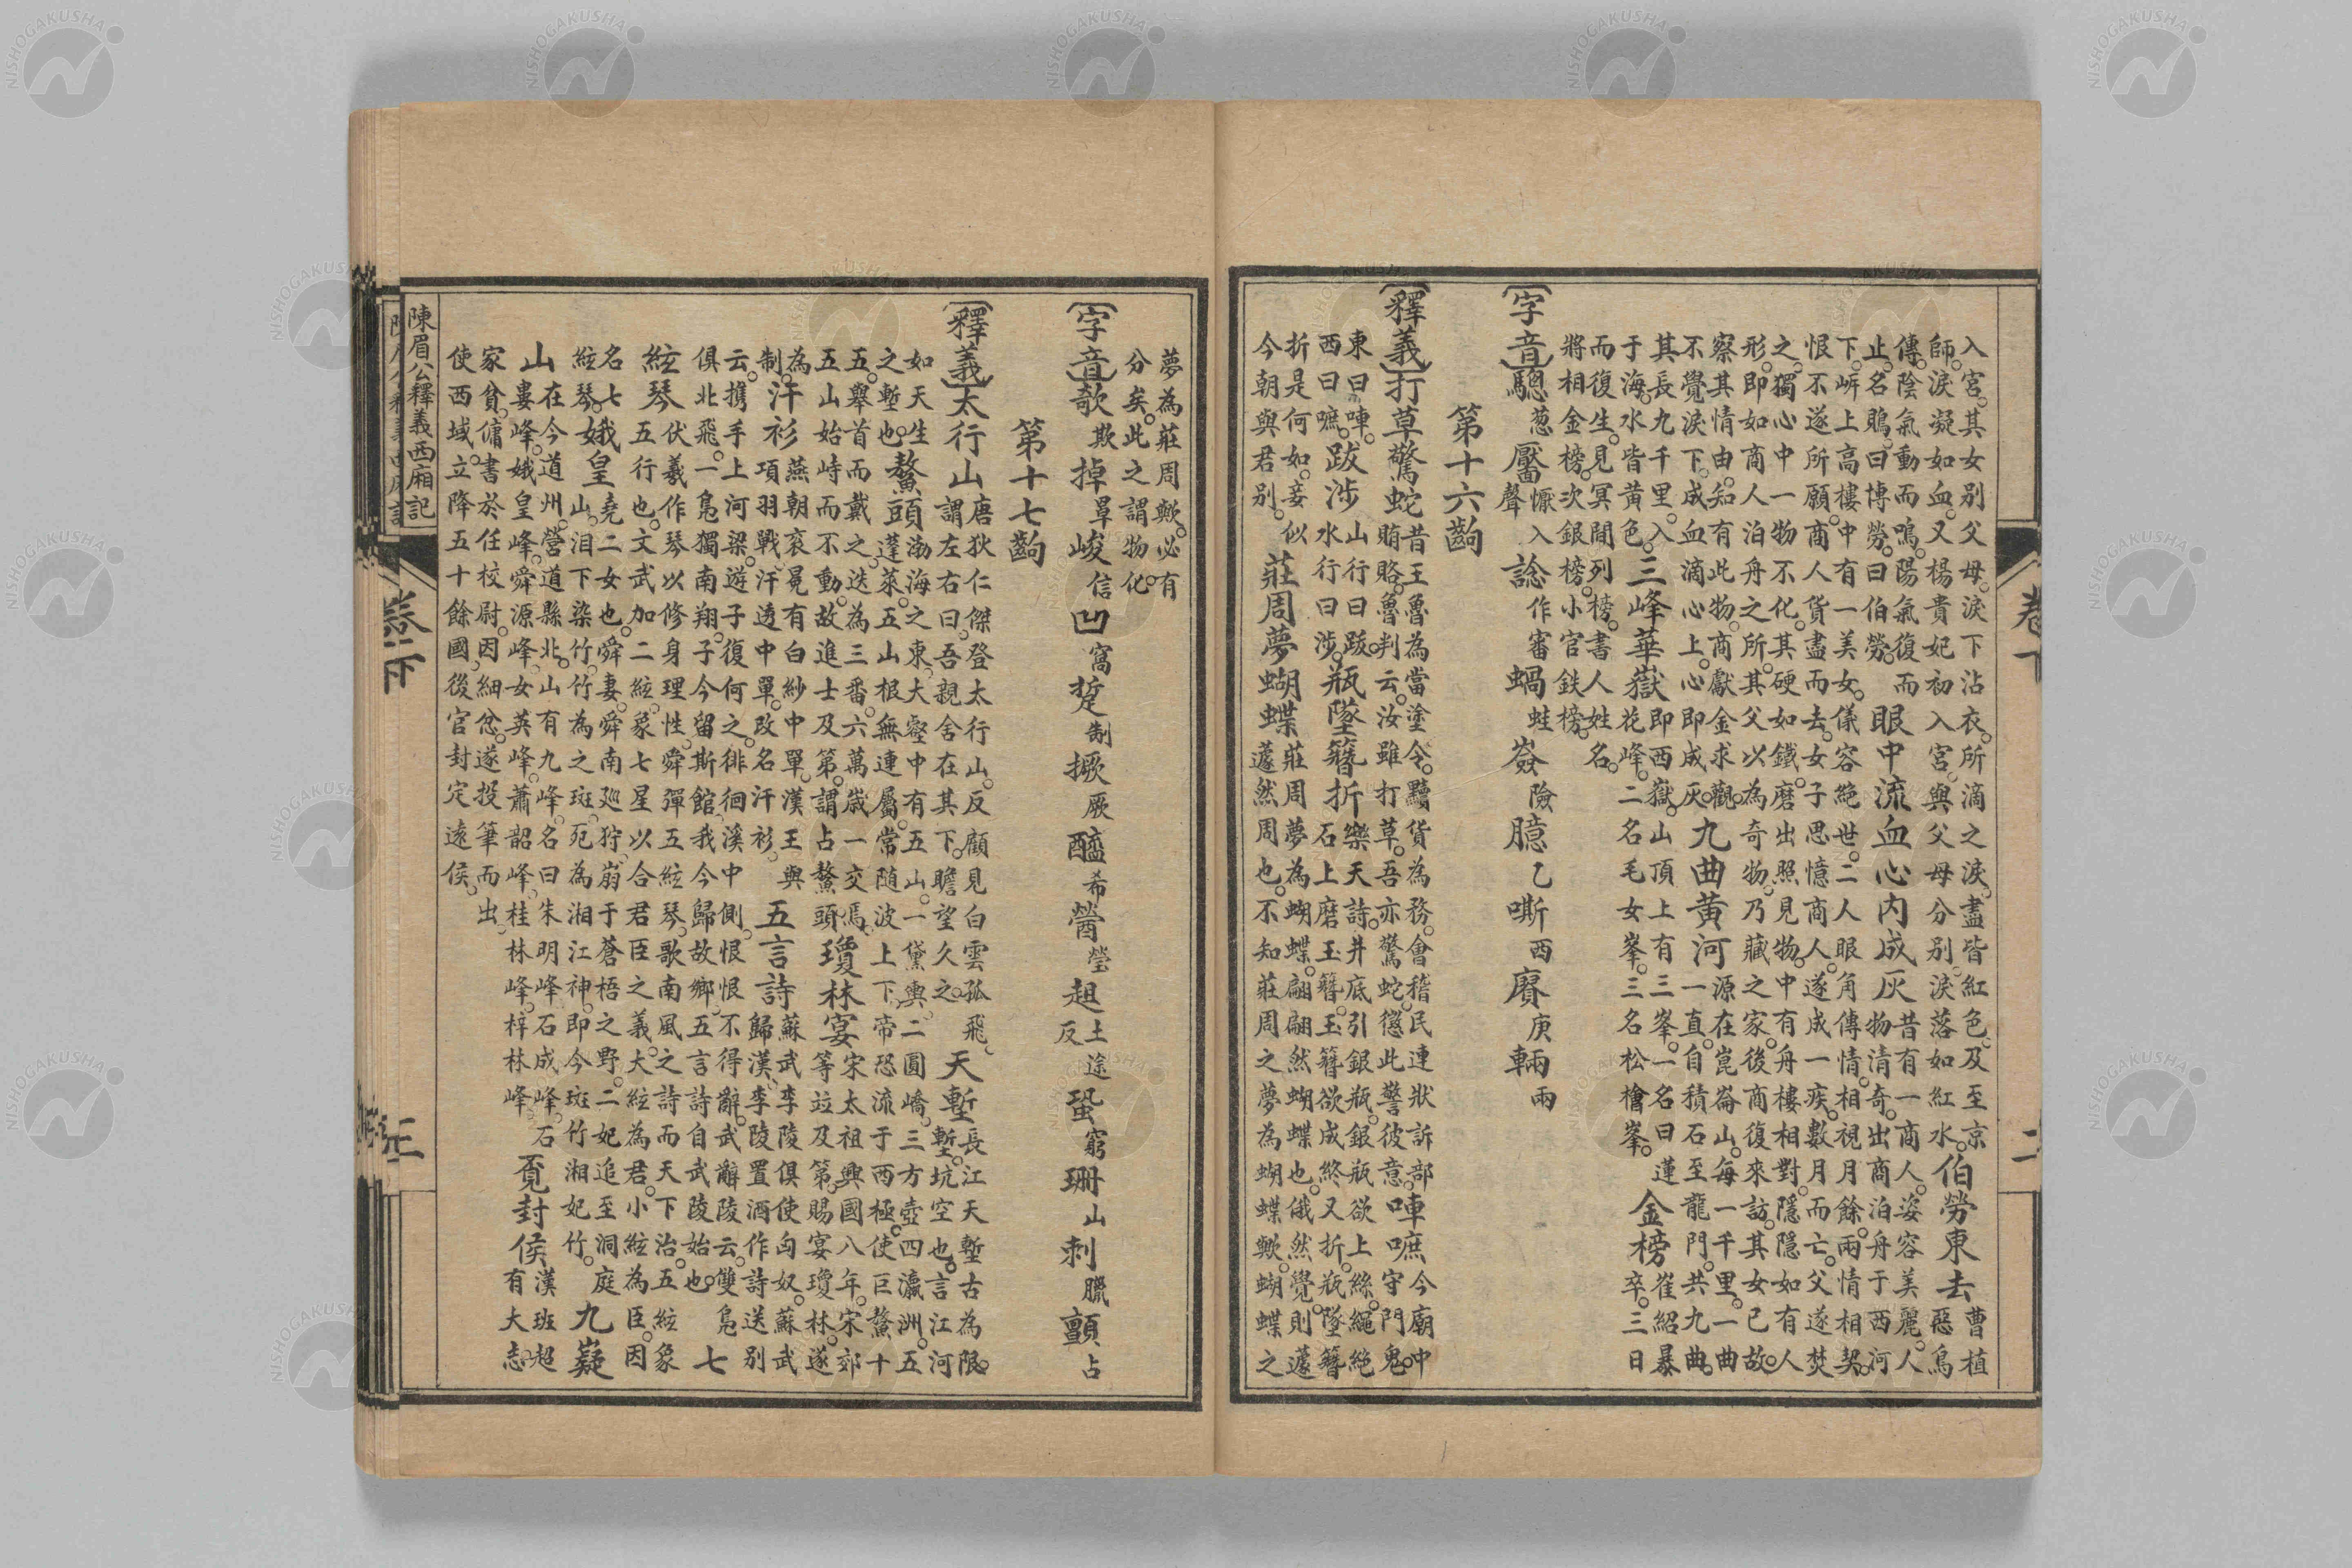 入宮其女別父母淚下沾衣所滴之淚盡皆紅色及至京
師淚凝如血又楊貴妃初入宮與父母分別淚落如紅水
伯勞東去
曹植
惡鳥
傳陰氣動而鳴陽氣復而
止名鵙曰博勞曰伯勞
眼中流血心內成灰
昔有一商人姿容美麗人
物清奇出商泊舟于西河
下㟁上高樓中有一美女儀容絕世二人眼角傳情相視月餘兩情相契
恨不遂所願商人貨盡而去女子思憶商人遂成一疾數月而亡父遂焚
之獨心中一物不化其硬如鐵磨出照見物中有舟樓相對隱隱如有人
形即如商人泊舟之所其父以為奇物乃藏之家後商復來訪其女已故
察其情由知有此物商獻金求觀
不覺淚下成血滴心上心即成灰
九曲黃河
源在崑崙山每一千里一曲
一直自積石至龍門共九曲
其長九千里入
于海水皆黃色
三峰華嶽
即西嶽山頂上有三峯一名曰蓮
花峰二名毛女峯三名松檜峯
金榜
崔紹暴
卒三日
而復生見冥間列榜書人姓名
將相金榜次銀榜小官鉄榜
字音 驄葱 靨懨入聲 諗作審 蝸蛙 險 臆乙 嘶西 賡庚 輛兩
第十六齣
釋義 打草驚蛇
昔王魯為當塗令黷貨為務會稽民連狀訴部
賄賂魯判云汝雖打草吾亦驚蛇懲此警彼意
唓嗻
今廟中
守門鬼
東曰唓
西曰嗻
跋涉
山行曰跋
水行曰涉
瓶墜簪折
樂天詩井底引銀瓶銀瓶欲上絲繩絕
石上磨玉簪玉簪欲成終又折瓶墜簪
折是何如妾似
今朝與君別
莊周夢蝴蝶
莊周夢為蝴蝶翩翩然蝴蝶也俄然覺則蘧
蘧然周也不知莊周之夢為蝴蝶歟蝴蝶之
卷下
二
夢為莊周歟必有
分矣此之謂物化
字音 欹欺 掉 峻信 凹窩 踅制 撅厥 醯希 營瑩 趄土途反 蛩窮 珊山 刺臘 顫占
第十七齣
釋義 太行山
唐狄仁傑登太行山反顧見白雲孤飛
謂左右曰吾親舍在其下瞻望久之
天塹
長江天塹古為限
塹坑空也言江河
如天生
之塹也
鰲頭
渤海之東大壑中有五山一黛輿二圓嶠三方壺四瀛洲五
蓬萊五山根無連屬常随波上下帝恐流于西極使巨鰲十
五舉首而戴之迭為三番六萬歲一交焉
五山始峙而不動故進士及第謂占鰲頭
瓊林宴
宋太祖興國八年宋郊
等竝及第賜宴瓊林遂
為
制
汗衫
燕朝衮冕有白紗中單漢王與
項羽戰汗透中單改名汗衫
五言詩
蘇武李陵俱使匈奴蘇武
歸漢李陵置酒作詩送別
云攜手上河梁遊子復何之徘徊溪中側恨恨不得辭武辭陵云雙鳧
俱北飛一鳧獨南翔子今留斯館我今歸故鄉五言詩自武陵始也
七
絃琴
伏羲作琴以修身理性舜彈五絃琴歌南風之詩而天下治五絃象
五行也文武加二絃象七星以合君臣之義大絃為君小絃為臣因
名七
絃琴
娥皇
堯二女也舜妻舜南廵狩崩于蒼梧之野二妃追至洞庭
山泪下染竹竹為之斑死為湘江神即今斑竹湘妃竹
九嶷
山
在今道州營道縣北山有九峰名曰朱明峰石成峰石
婁峰娥皇峰舜源峰女英峰蕭韶峰桂林峰梓林峰
覓封侯
漢班超
有大志
家貧傭書於任校尉因細忿遂投筆而出
使西域立降五十餘國後官封定遠侯
陳眉公釋義西廂記
卷下
三